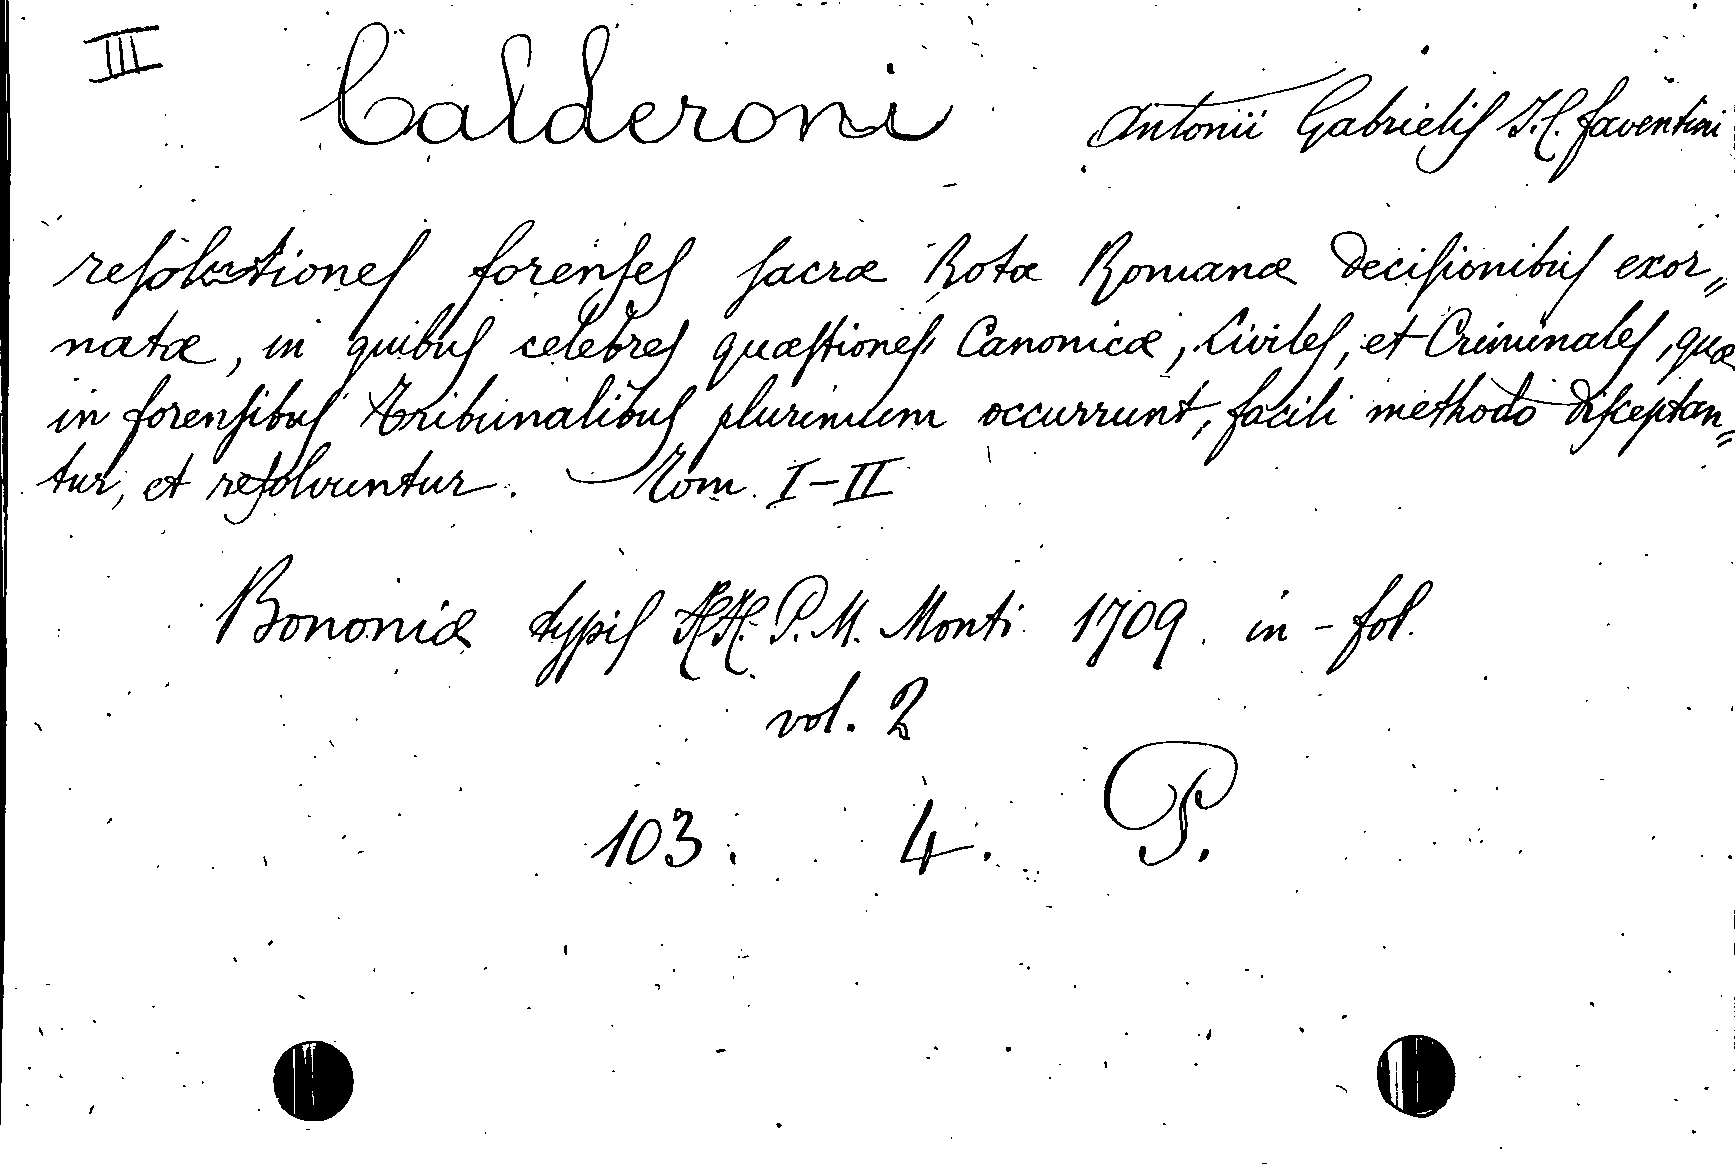 III Calderoni Antonii Gabrielis J.C. faventini
resolutiones forenses sacræ Rotæ Romanæ decisionibus exor„
natæ, in quibus celebres quæstiones Canonicæ, Civiles, et Criminales, quæ
in forensibus tribunalibus plurimum occurrunt, facili methodo disceptan„
tur, et resolvuntur. Tom. I-II
Bononiæ typis HH. P. M. Monti 1709. in-fol.
vol. 2
103. 4. P.